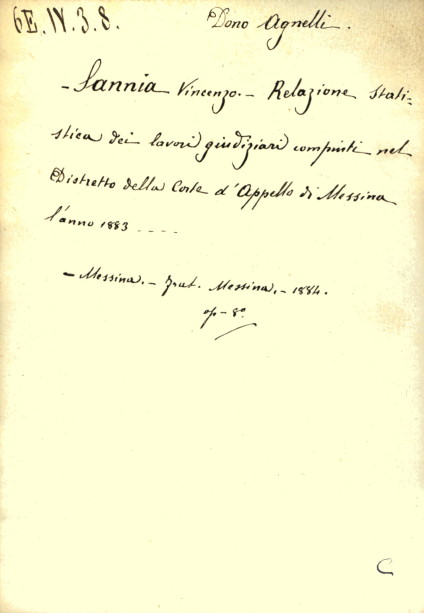 6E.IV.3.8.
Dono Agnelli.
- Sannia Vincenzo. - Relazione stati=
stica dei lavori giudiziari compiuti nel
Distretto della Corte d'Appello di Messina
l'anno 1883 ----
- Messina. - frat. Messina. - 1884.
op - 8º
C